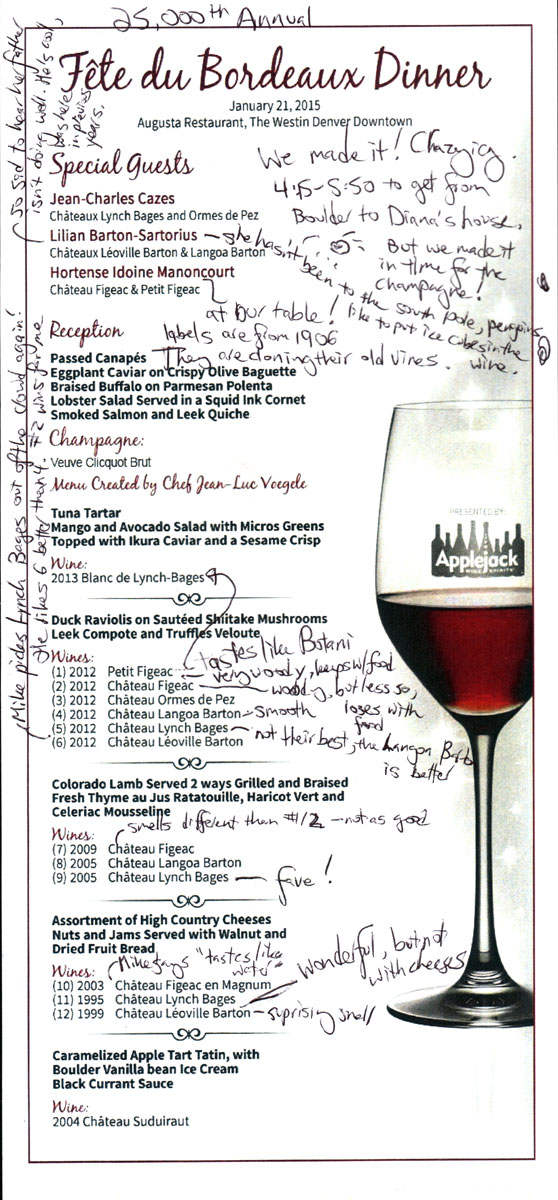 25,000th Annual
Fête du Bordeaux Dinner
January 21, 2015
Augusta Restaurant, The Westin Denver Downtown
So sad to hear her father
isn't doing well. He's cool,
was here
in previous
years.
We made it! Crazyicy.
4:15-5:50 to get from
Boulder to Diana's house.
But we made it
in time for the
champagne!
Special Guests
Jean-Charles Cazes
Châteaux Lynch Bages and Ormes de Pez
Lilian Barton-Sartorius
Châteaux Léoville Barton & Langoa Barton
she hasn't been to the south pole, penguins
like to put ice cubes in the
wine.
Hortense Idoine Manoncourt
Château Figeac & Petit Figeac
at our table!
labels are from 1906
They are cloning their old vines.
Reception
Passed Canapés
Eggplant Caviar on Crispy Olive Baguette
Braised Buffalo on Parmesan Polenta
Lobster Salad Served in a Squid Ink Cornet
Smoked Salmon and Leek Quiche
Champagne:
Veuve Clicquot Brut
Menu Created by Chef Jean-Luc Voegele
PRESENTED BY:
Applejack
WINE & SPIRITS
Tuna Tartar
Mango and Avocado Salad with Micros Greens
Topped with Ikura Caviar and a Sesame Crisp
Wine:
2013 Blanc de Lynch-Bages
Mike picks Lynch Bages out of the crowd again!
He likes 6 better than 4. #2 wins for me
Duck Raviolis on Sautéed Shiitake Mushrooms
Leek Compote and Truffles Veloute
tastes like Botani
Wines:
(1) 2012 Petit Figeac
very woody, keeps w/ food
(2) 2012 Château Figeac
woody, but less so,
loses with
food
(3) 2012 Château Ormes de Pez
(4) 2012 Château Langoa Barton
smooth
(5) 2012 Château Lynch Bages
not their best, the Langoa Barton
is better
(6) 2012 Château Léoville Barton
Colorado Lamb Served 2 ways Grilled and Braised
Fresh Thyme au Jus Ratatouille, Haricot Vert and
Celeriac Mousseline
smells different than #1/2 - not as good
Wines:
(7) 2009 Château Figeac
(8) 2005 Château Langoa Barton
(9) 2005 Château Lynch Bages
fave!
Assortment of High Country Cheeses
Nuts and Jams Served with Walnut and
Dried Fruit Bread
Mike says "tastes like
water"
Wines:
(10) 2003 Château Figeac en Magnum
(11) 1995 Château Lynch Bages
wonderful, but not
with cheeses
(12) 1999 Château Léoville Barton
suprising smell
Caramelized Apple Tart Tatin, with
Boulder Vanilla bean Ice Cream
Black Currant Sauce
Wine:
2004 Château Suduiraut